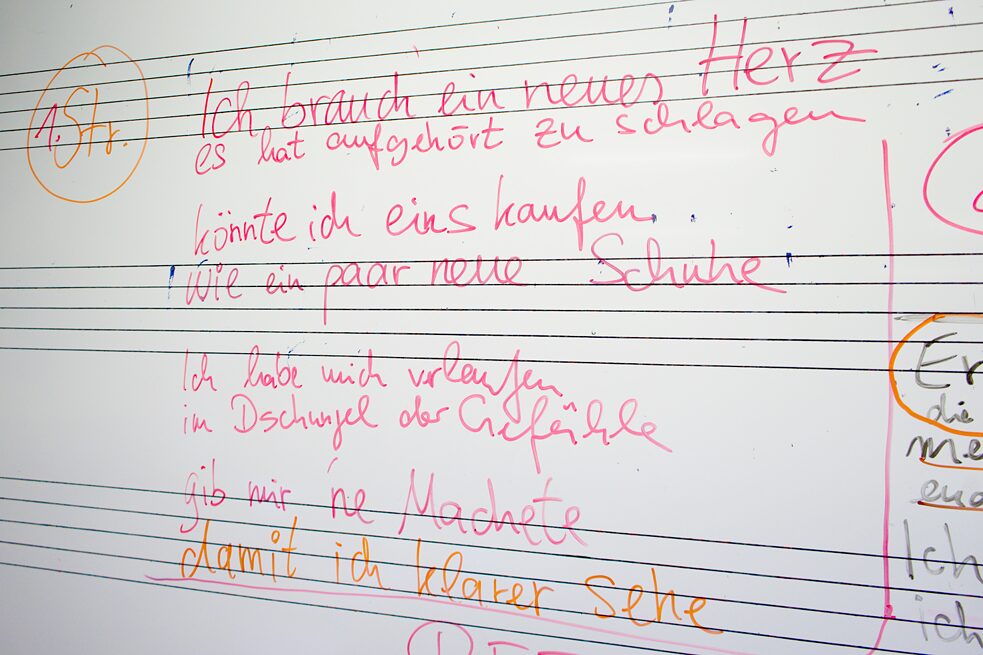 1. Str.
Ich brauch ein neues Herz
es hat aufgehört zu schlagen
könnte ich eins kaufen
wie ein paar neue Schuhe
Ich habe mich verlaufen
im Dschungel der Gefühle
gib mir 'ne Machete
damit ich klarer sehe
Er
die
me
Ich
ich
1